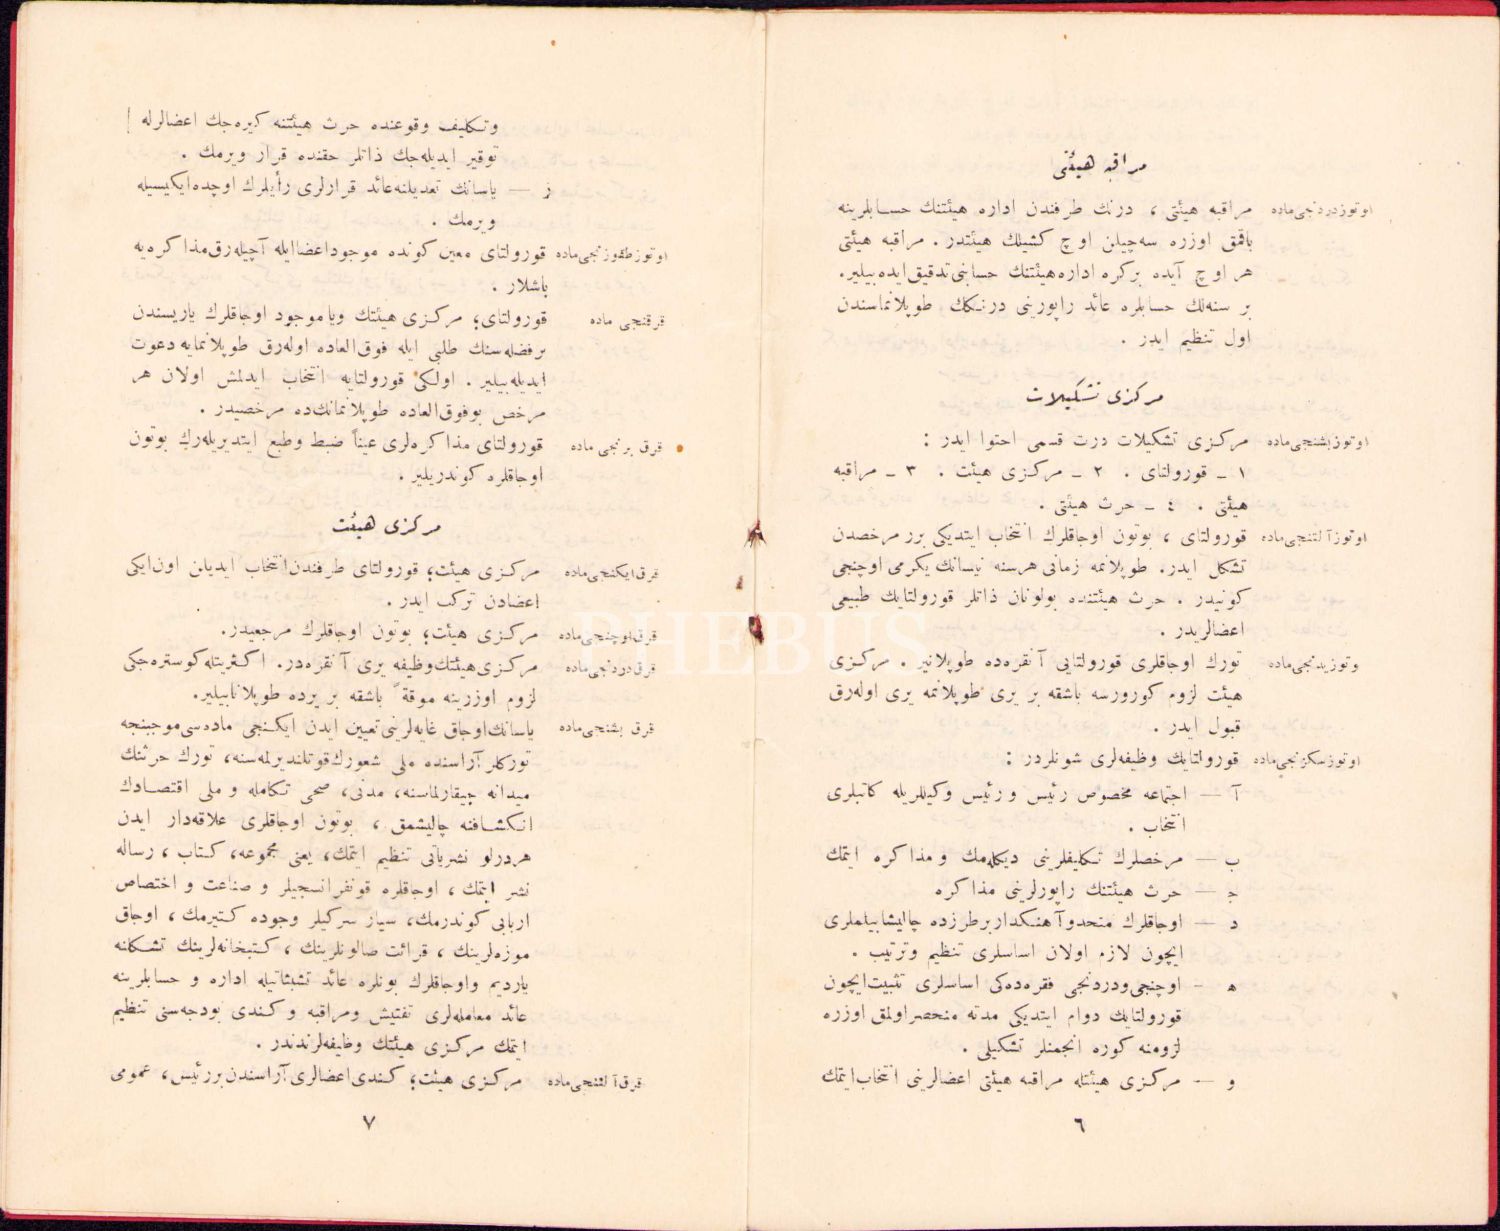 مراقبه هيئتى
اوتوزدردنجى‌ماده مراقبه هيئتى ، درنك طرفندن اداره هيئتنك حسابلرينه
باقمق اوزره سه‌چيلن اوچ كشيلك هيئتدر . مراقبه هيئتى
هر اوچ آيده بركره اداره‌هيئتنك حسابنى تدقيق‌ايده‌بيلير.
بر سنه‌لك حسابلره عائد راپورينى درنككك طوپلانماسندن
اول تنظيم ايدر .
مركزى تشكيلات
اوتوزبشنجى‌ماده مركزى تشكيلات درت قسمى احتوا ايدر :
١ ـ قورولتاى . ٢ ـ مركزى هيئت . ٣ ـ مراقبه
هيئتى . ٤ ـ حرث هيئتى .
اوتوزآلتنجى‌ماده قورولتاى ، بوتون اوجاقلرك انتخاب ايتديكى برر مرخصدن
تشكل ايدر. طوپلانمه زمانى هرسنه نيسانك يكرمى اوچنجى
كونيدر . حرث هيئتنده بولونان ذاتلر قورولتايك طبيعى
اعضالريدر .
وتوزيدنجى‌ماده تورك اوجاقلرى قورولتايى آنقره‌ده طوپلانير . مركزى
هيئت لزوم كورورسه باشقه بر يرى طوپلانمه يرى اوله‌رق
قبول ايدر .
اوتوزسكزنجى‌ماده قورولتايك وظيفه‌لرى شونلردر :
آ — اجتماعه مخصوص رئيس و رئيس وكيللريله كاتبلرى
انتخاب .
ب — مرخصلرك تكليفلرينى ديكله‌مك و مذاكره ايتمك
ج — حرث هيئتنك راپورلرينى مذاكره
د — اوجاقلرك متحدوآهنكدار برطرزده چاليشابيلملرى
ايچون لازم اولان اساسلرى تنظيم وترتيب .
ه — اوچنجى‌ودردنجى فقره‌ده‌كى اساسلرى تثبيت‌ايچون
قورولتايك دوام ايتديكى مدته منحصراولمق اوزره
لزومنه كوره انجمنلر تشكيلى .
و — مركزى هيئتله مراقبه هيئتى اعضالرينى انتخاب‌ايتمك
٦
وتكليف وقوعنده حرث هيئتنه كيره‌جك اعضالرله
توقير ايديله‌جك ذاتلر حقنده قرار ويرمك .
ز — ياسانك تعديلنه‌عائد قرارلرى رأيلرك اوچده‌ايكيسيله
ويرمك .
اوتوزطقوزنجى‌ماده قورولتاى معين كونده موجوداعضاايله آچيله‌رق‌مذاكره‌يه
باشلار .
قرقنجى ماده قورولتاى؛ مركزى هيئتك وياموجود اوجاقلرك ياريسندن
برفضله‌سنك طلبى ايله فوق‌العاده اوله‌رق طوپلانمايه دعوت
ايديله‌بيلير . اولكى قورولتايه انتخاب ايدلمش اولان هر
مرخص بوفوق‌العاده طوپلانمانك‌ده مرخصيدر .
قرق برنجى ماده قورولتاى مذاكره‌لرى عيناً ضبط وطبع ايتديريله‌رك بوتون
اوجاقلره كوندريلير .
مركزى هيئت
قرق‌ايكنجى‌ماده مركزى هيئت؛ قورولتاى طرفندن‌انتخاب ايديلن اون‌ايكى
اعضادن تركب ايدر .
قرق‌اوچنجى‌ماده مركزى هيئت؛ بوتون اوجاقلرك مرجعيدر.
قرق‌دردنجى‌ماده مركزى‌هيئتك‌وظيفه يرى آنقره‌در. اكثريتله‌كوستره‌جكى
لزوم اوزرينه موقةً باشقه بر يرده طوپلانابيلير.
قرق بشنجى‌ماده ياسانك‌اوجاق غايه‌لرينى‌تعيين ايدن ايكنجى ماده‌سى‌موجبنجه
توركلر آراسنده ملى شعورك‌قوتلنديرلمه‌سنه، تورك حرثنك
ميدانه چيقارلماسنه، مدنى، صحى تكامله و ملى اقتصادك
انكشافنه چاليشمق ، بوتون اوجاقلرى علاقه‌دار ايدن
هردرلو نشرياتى تنظيم ايتمك، يعنى مجموعه، كتاب ، رساله
نشر ايتمك ، اوجاقلره قونفرانسجيلر و صناعت و اختصاص
اربابى كوندرمك، سيار سركيلر وجوده كتيرمك ، اوجاق
موزه‌لرينك ، قرائت صالونلرينك ، كتبخانه‌لرينك تشكلنه
يارديم واوجاقلرك بونلره عائد تشبثاتيله اداره و حسابلرينه
عائد معامله‌لرى تفتيش ومراقبه و كندى بودجه‌سنى تنظيم
ايتمك مركزى هيئتك وظيفه‌لرندندر .
قرق‌آلتنجى‌ماده مركزى هيئت؛ كندى‌اعضالرى‌آراسندن بررئيس، عمومى
٧
PHEBUS